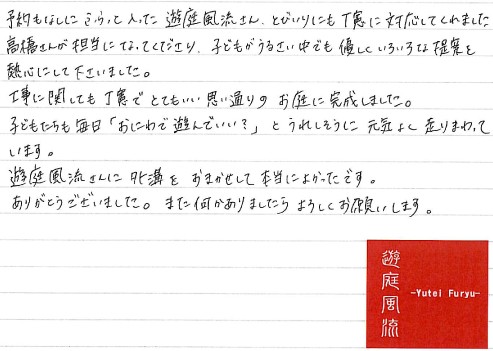 予約もなしに ふらっと入った 遊庭風流さん。とびいりにも丁寧に対応してくれました
高橋さんが担当になってくださり、子どもがうるさい中でも 優しくいろいろな提案を
熱心にして下さいました。
工事に関しても丁寧で とてもいい思い通りの お庭に完成しました。
子どもたちも毎日「おにわで遊んでいい？」と うれしそうに 元気よく 走りまわって
います。
遊庭風流さんに 外溝を おまかせして本当によかったです。
ありがとうございました。 また何かありましたら よろしくお願いします。
遊庭風流
-Yutei Furyu-